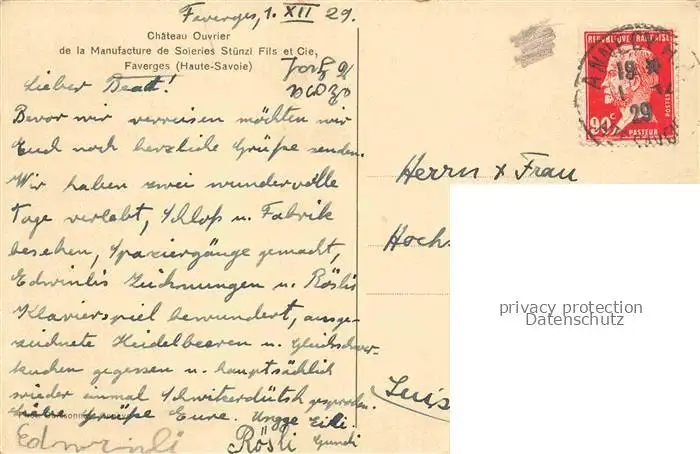 Faverges, 1. XII 29.
Château Ouvrier
de la Manufacture de Soieries Stünzi Fils et Cie,
Faverges (Haute-Savoie)
Lieber Beat!
Bevor wir verreisen möchten wir
Euch noch herzliche Grüsse senden.
Wir haben zwei wundervolle
Tage verlebt, Schloss u. Fabrik
besehen, Spaziergänge gemacht,
Edwinlis Zeichnungen u. Röslis
Klavierspiel bewundert, ausge-
zeichnete Heidelbeeren u.
kuchen gegessen u. hauptsächlich
wieder einmal Schwitzerdütsch gesprochen.
Liebe Grüsse Eure.
Edwinli Rösli
Herrn & Frau
Hochs
Suis
REPUBLIQUE FRANÇAISE
POSTES
90c
PASTEUR
29
privacy protection
Datenschutz